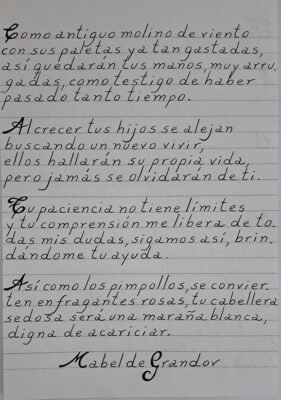 Como antiguo molino de viento
con sus paletas ya tan gastadas,
así quedarán tus maños, muy arru.
gadas, como testigo de haber
pasado tanto tiempo.
Al crecer tus hijos se alejan
buscando un nuevo vivir,
ellos hallarán su propia vida,
pero jamás se olvidarán de ti.
Tu paciencia no tiene límites
y tu comprensión me libera de to.
das mis dudas, sigamos así, brin.
dándome tu ayuda.
Así como los pimpollos, se convier.
ten en fragantes rosas, tu cabellera
sedosa será una maraña blanca,
digna de acariciar.
Mabel de Grandov